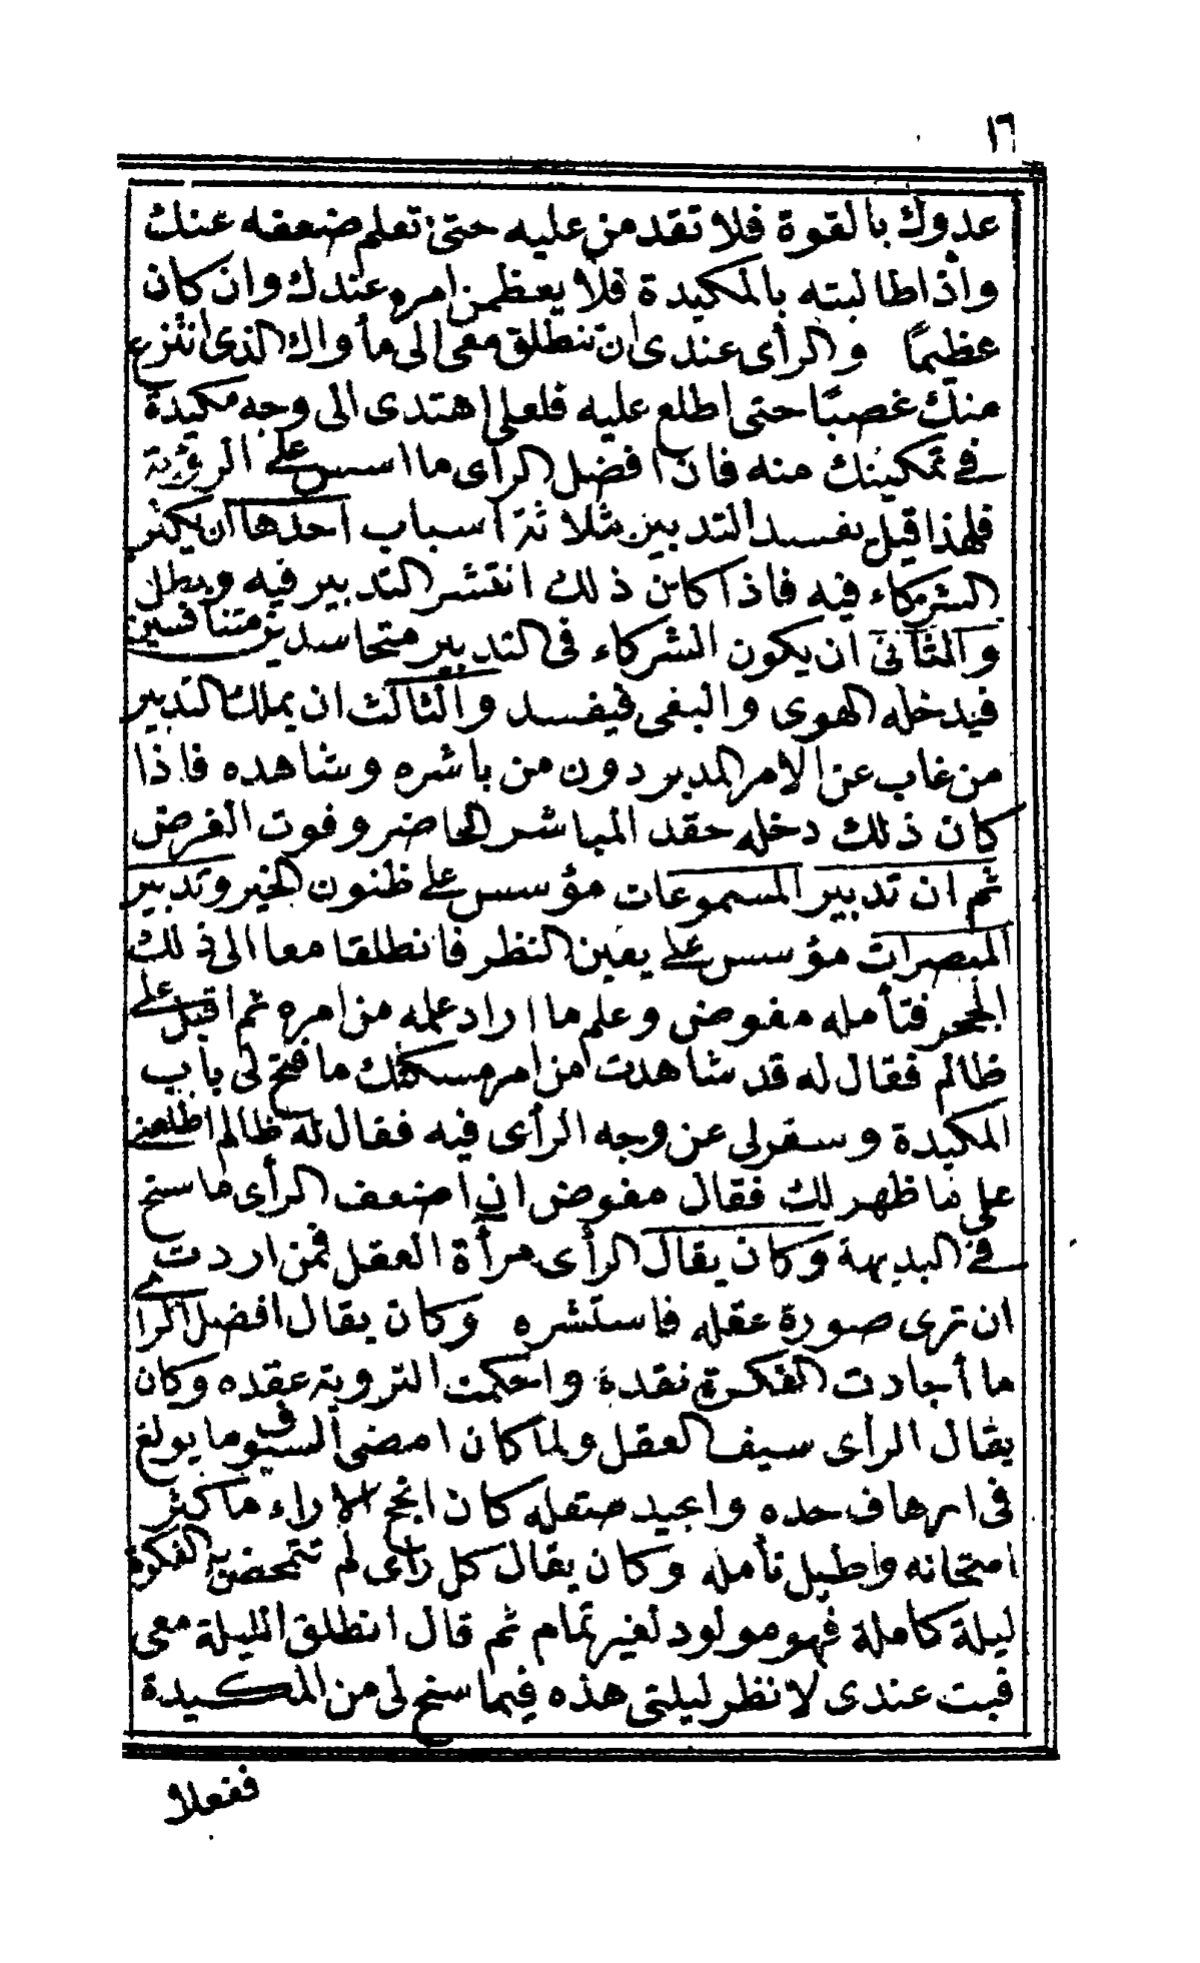 ١٦
عدوك بالقوة فلا تقدمن عليه حتى تعلم ضعفه عنك
واذا طالبته بالمكيدة فلا يعظمن امره عندك وان كان
عظيمًا والرأى عندى ان تنطلق معى الى مأواك الذى انتزع
منك غصبًا حتى اطلع عليه فلعلى اهتدى الى وجه مكيدة
فى تمكينك منه فان افضل الرأى ما اسس على الرؤية
فلهذا قيل يفسد التدبير بثلاثة اسباب احدها ان يكثر
الشركاء فيه فاذا كان ذلك انتشر التدبير فيه وبطل
والثانى ان يكون الشركاء فى التدبير متحاسدين متنافسين
فيدخله الهوى والبغى فيفسد والثالث ان يملك التدبير
من غاب عن الامر المدبر دون من باشره وشاهده فاذا
كان ذلك دخله حقد المباشر الحاضر وفوت الفرض
ثم ان تدبير المسموعات مؤسس على ظنون الخبر وتدبير
المبصرات مؤسس على يقين النظر فانطلقا معا الى ذلك
الجحر فتأمله مفوض وعلم ما اراد علمه من امره ثم اقبل على
ظالم فقال له قد شاهدت من امر مسكنك ما فتح لى باب
المكيدة وسفر لى عن وجه الرأى فيه فقال له ظالم اطلعنى
على ما ظهر لك فقال مفوض ان اضعف الرأى ما سنح
فى البديهة وكان يقال الرأى مرأة العقل فمن اردت
ان ترى صورة عقله فاستشره وكان يقال افضل الراى
ما أجادت الفكرة نقده واحكمت التروية عقده وكان
يقال الرأى سيف العقل ولما كان امضى السيوف ما بولغ
فى ارهاف حده واجيد صقله كان انجح الاراء ما كثر
امتحانه واطيل تأمله وكان يقال كل رأى لم تتمخض به الفكرة
ليلة كاملة فهو مولود لغير تمام ثم قال انطلق الليلة معى
فبت عندى لانظر ليلتى هذه فيما سنح لى من المكيدة
ففعلا